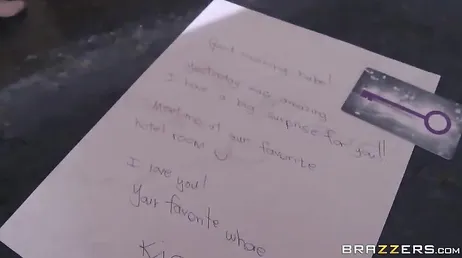 Good morning babe!
Yesterday was amazing
I have a big surprise for you!!
Meet me at our favourite
hotel room
I love you!
Your favorite whore
BRAZZERS.COM